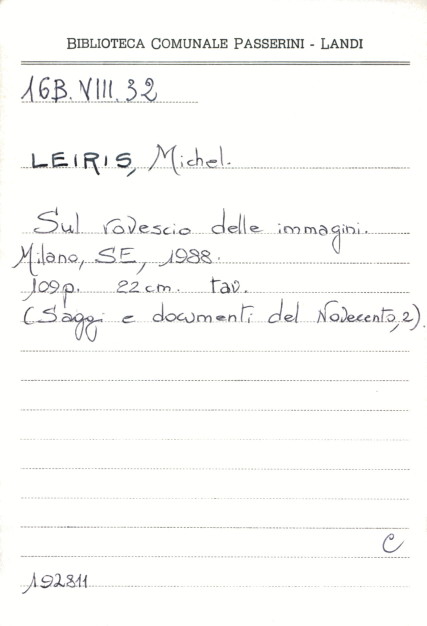 BIBLIOTECA COMUNALE PASSERINI - LANDI
16B.VIII.32
LEIRIS, Michel.
Sul rovescio delle immagini.
Milano, SE, 1988.
109p. 22cm. tav.
(Saggi e documenti del Novecento, 2)
C
192811